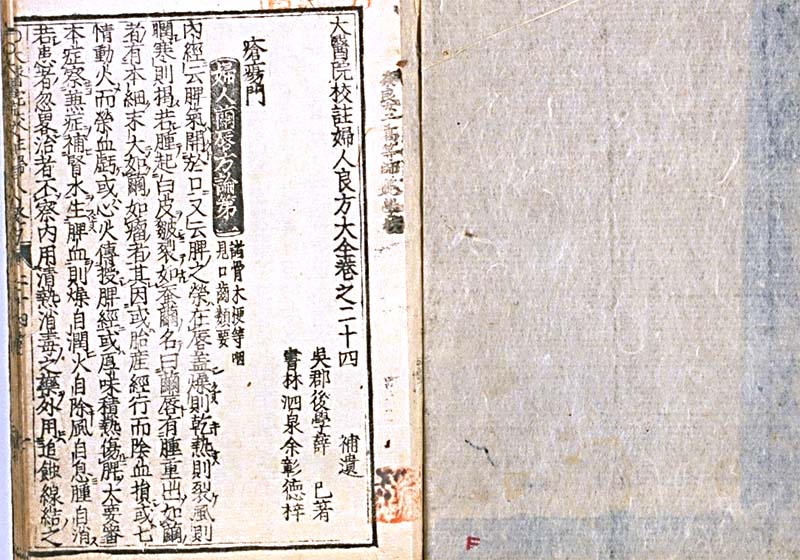 大醫院校註婦人良方大全卷之二十四
補遺
吳郡後學薛 己著
書林泗泉余彰德梓
瘡瘍門
婦人繭唇方論第一
諸骨木梗等咽
見口齒類要
內經云脾氣開於口又云脾之榮在唇蓋燥則乾熱則裂風則
瞤寒則揭若腫起白皮皺裂如蚕繭名曰繭唇有腫重出如繭
者有本細末大如繭如瘤者其因或胎産經行而陰血損或七
情動火而榮血虧或心火傳授脾經或厚味積熱傷脾大要審
本症察兼症補腎水生脾血則燥自潤火自除風自息腫自消
若患者忽畧治者不察內用清熱消毒之藥外用追蝕線結之